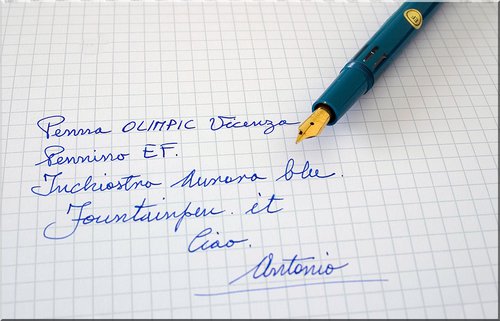 Penna OLIMPIC Vicenza
Pennino EF.
Inchiostro Aurora blu.
Fountainpen.it
Ciao.
Antonio